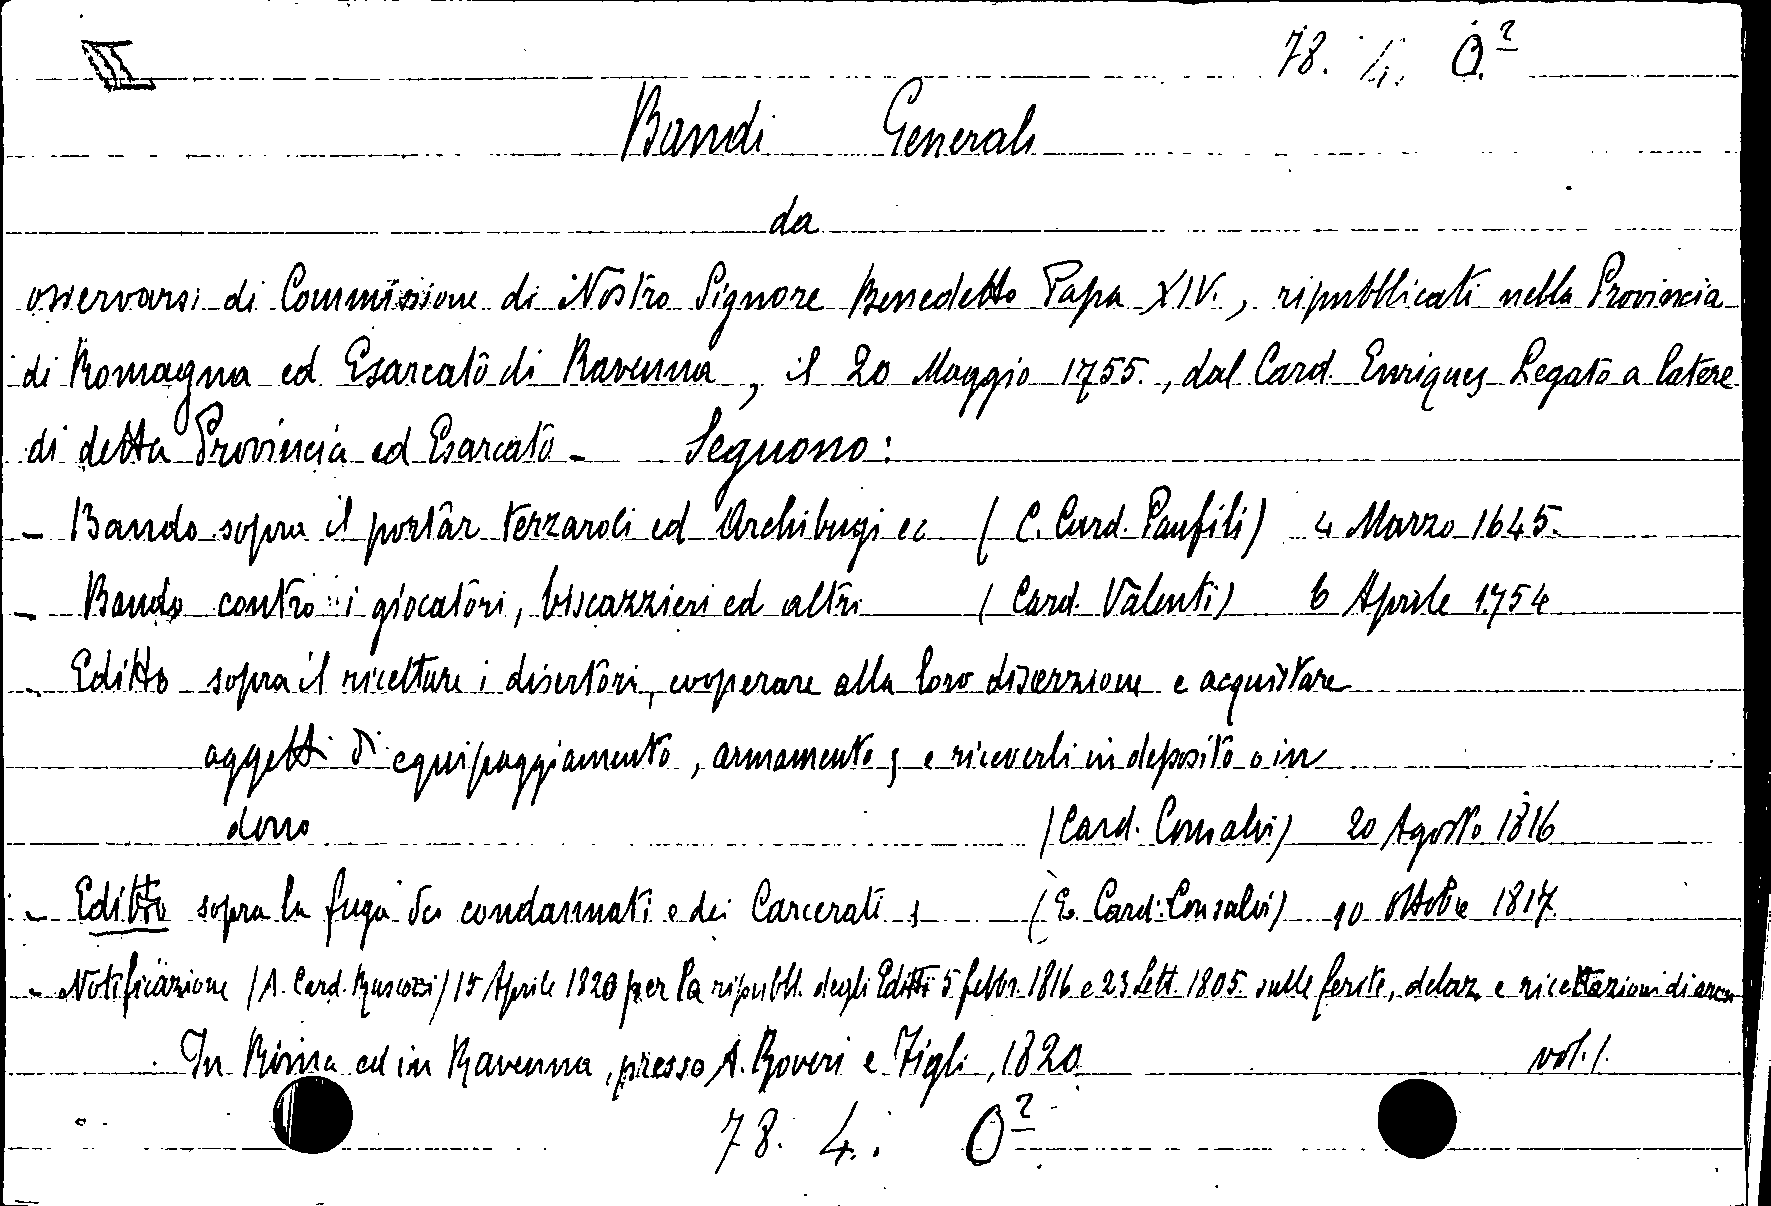 II 78. 4. O.²
Bandi Generali
da
osservarsi di Commissione di Nostro Signore Benedetto Papa XIV., ripubblicati nella Provincia
di Romagna ed Esarcato di Ravenna, il 20 Maggio 1755., dal Card. Enriquez Legato a latere
di detta Provincia ed Esarcato - Seguono:
- Bando sopra il portar terzaroli ed Archibugi ec (C. Card. Panfili) 4 Marzo 1645.
- Bando contro i giocatori, biscazzieri ed altri (Card. Valenti) 6 Aprile 1754
- Editto sopra il ricettare i disertori, cooperare alla loro diserzione e acquistare
oggetti di equipaggiamento, armamento, e riceverli in deposito o in
dono (Card. Consalvi) 20 Agosto 1816
- Editto sopra la fuga dei condannati e dei Carcerati, (E. Card. Consalvi) 10 Ottobre 1817
- Notificazione (A. Card. Rusconi) 15 Aprile 1820 per la ripubbl. degli Editti 5 febbr. 1816 e 23 Sett. 1805. sulle ferite, delaz. e ricettazioni di armi
In Rimini ed in Ravenna, presso A. Roveri e Figli, 1820 vol. 1.
78. 4. O²